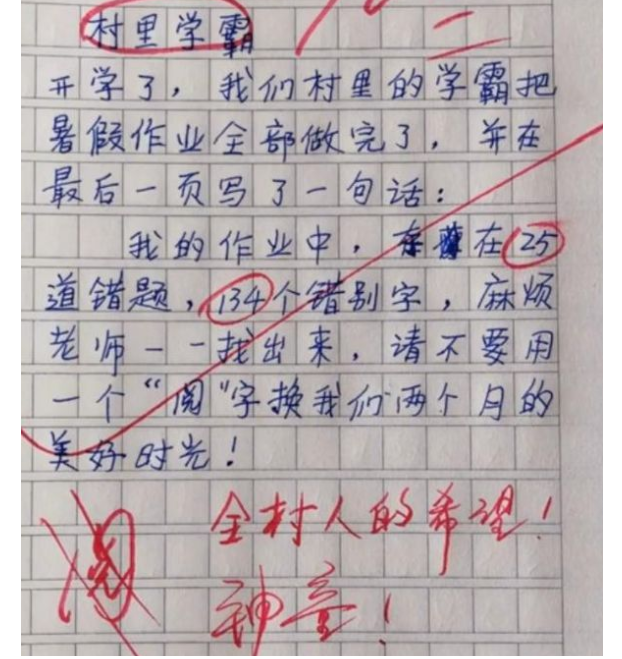 村里学霸
开学了，我们村里的学霸把
暑假作业全部做完了，并在
最后一页写了一句话：
我的作业中，存在25
道错题，134个错别字，麻烦
老师一一找出来，请不要用
一个“阅”字换我们两个月的
美好时光！
阅
全村人的希望！
神童！